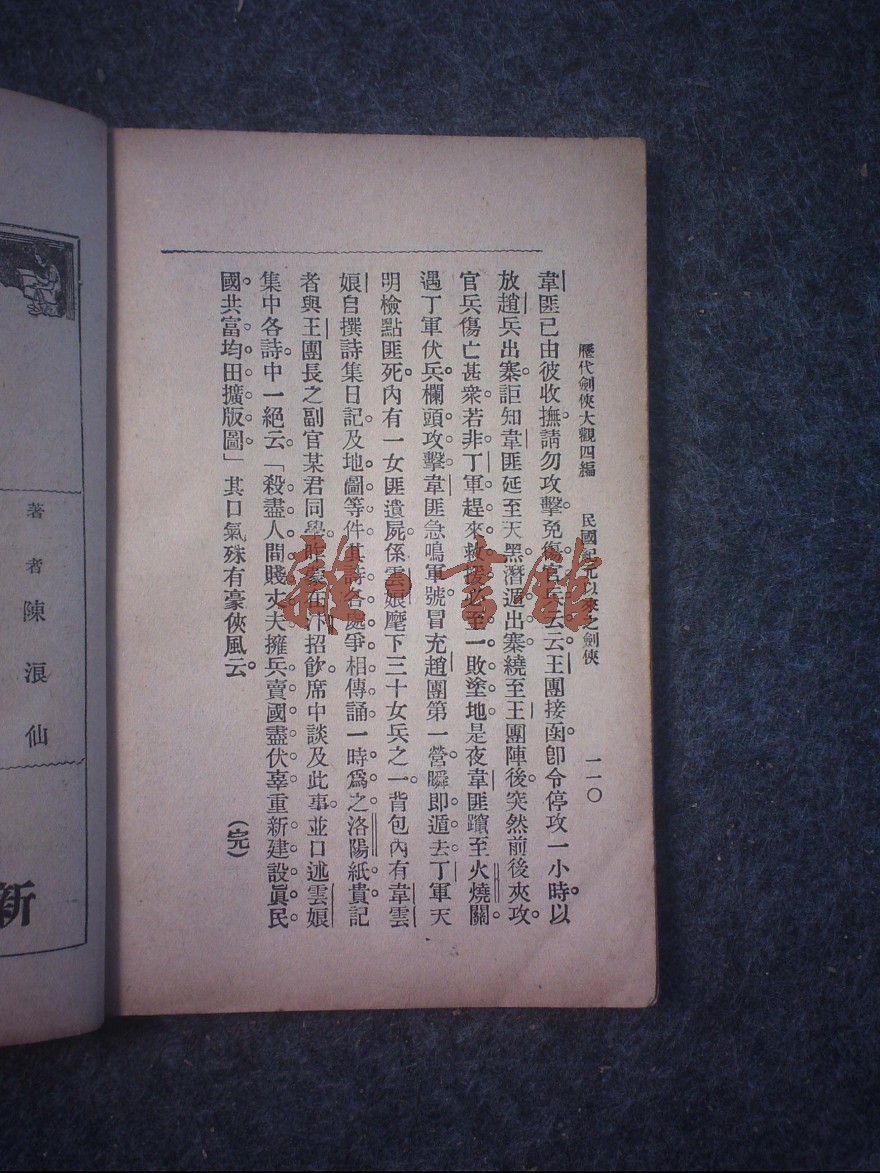 歷代劍俠大觀四編　民國紀元以來之劍俠　一一〇
韋匪已由彼收撫。請勿攻擊。免傷官兵云云。王團接函。卽令停攻一小時。以
放趙兵出寨。詎知韋匪延至天黑。潛遁出寨。繞至王團陣後。突然前後夾攻。
官兵傷亡甚衆。若非丁軍趕來救援。必至一敗塗地。是夜韋匪躓至火燒關。
遇丁軍伏兵。欄頭攻擊。韋匪急鳴軍號。冒充趙團第一營。瞬即遁去。丁軍天
明檢點匪死。內有一女匪遺屍。係雲娘麾下三十女兵之一。背包內有韋雲
娘自撰詩集日記。及地圖等件。其詩各處爭相傳誦。一時爲之洛陽紙貴。記
者與王團長之副官某君同學。昨蒙在汴招飮。席中談及此事。並口述雲娘
集中各詩。中一絕云。「殺盡人間賤丈夫。擁兵賣國盡伏辜。重新建設眞民
國。共富均田擴版圖。」其口氣殊有豪俠風云。
（完）
著者　陳浪仙
新
雜·書館